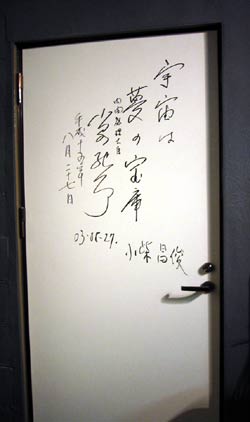 宇宙は
夢の宝庫
小柴昌俊
内閣総理大臣
平成十五年
八月二十七日
03.08.27.